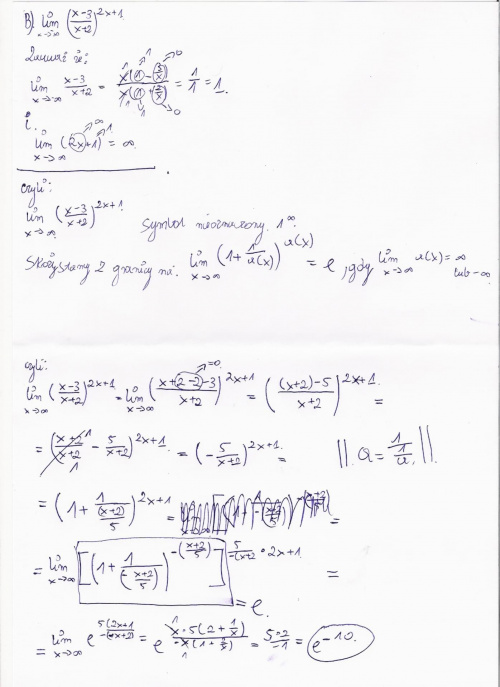 B) lim x→∞ (x-3/x+2)^2x+1
lim x→∞ x-3/x+2 = x(1-3/x)/x(1+2/x) = 1/1 = 1
i.
lim x→∞ (2x+1) = ∞
czyli:
lim x→∞ (x-3/x+2)^2x+1 symbol nieoznaczony 1^∞
Skorzystamy z granicy lim x→∞ (1+1/u(x))^u(x) = e, gdy lim x→∞ u(x)=∞ lub -∞
czyli:
lim x→∞ (x-3/x+2)^2x+1 = lim x→∞ (x+2-2-3/x+2)^2x+1 = ((x+2)-5/x+2)^2x+1 =
= (x+2/x+2 - 5/x+2)^2x+1 = (-5/x+2)^2x+1 = ||. a = 1/1/a. ||.
= (1+1/(x+2)/5)^2x+1 = =
= lim x→∞ [(1+1/-(x+2/5))^-(x+2/5)]^5/-(x+2 • 2x+1 =
= e.
= lim x→∞ e^5(2x+1/-(x+2) = e^x•5(2+1/x)/-x(1+2/x) = 5•2/-1 = e^-10.